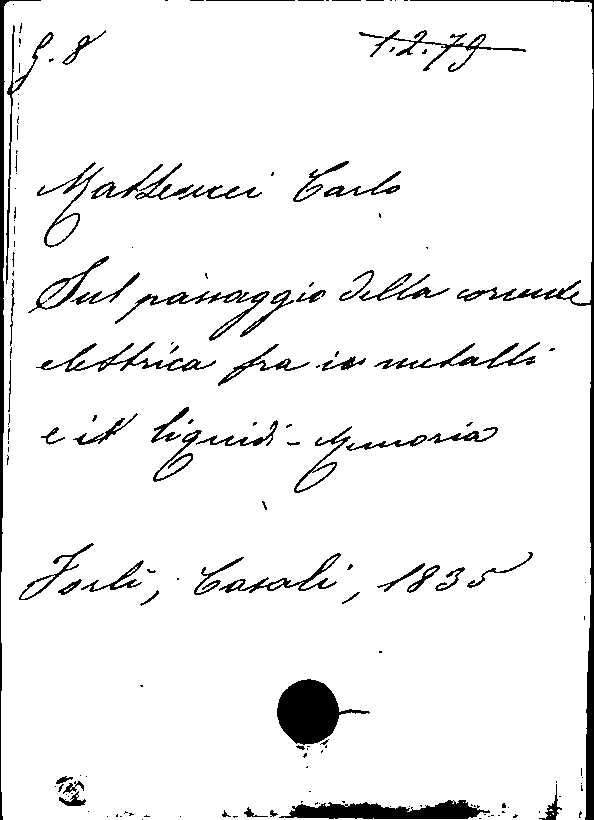 G. 8 1.2.79
Matteucci Carlo
Sul passaggio della corrente
elettrica fra i metalli
e i liquidi - Memoria
Forlì, Casali, 1835